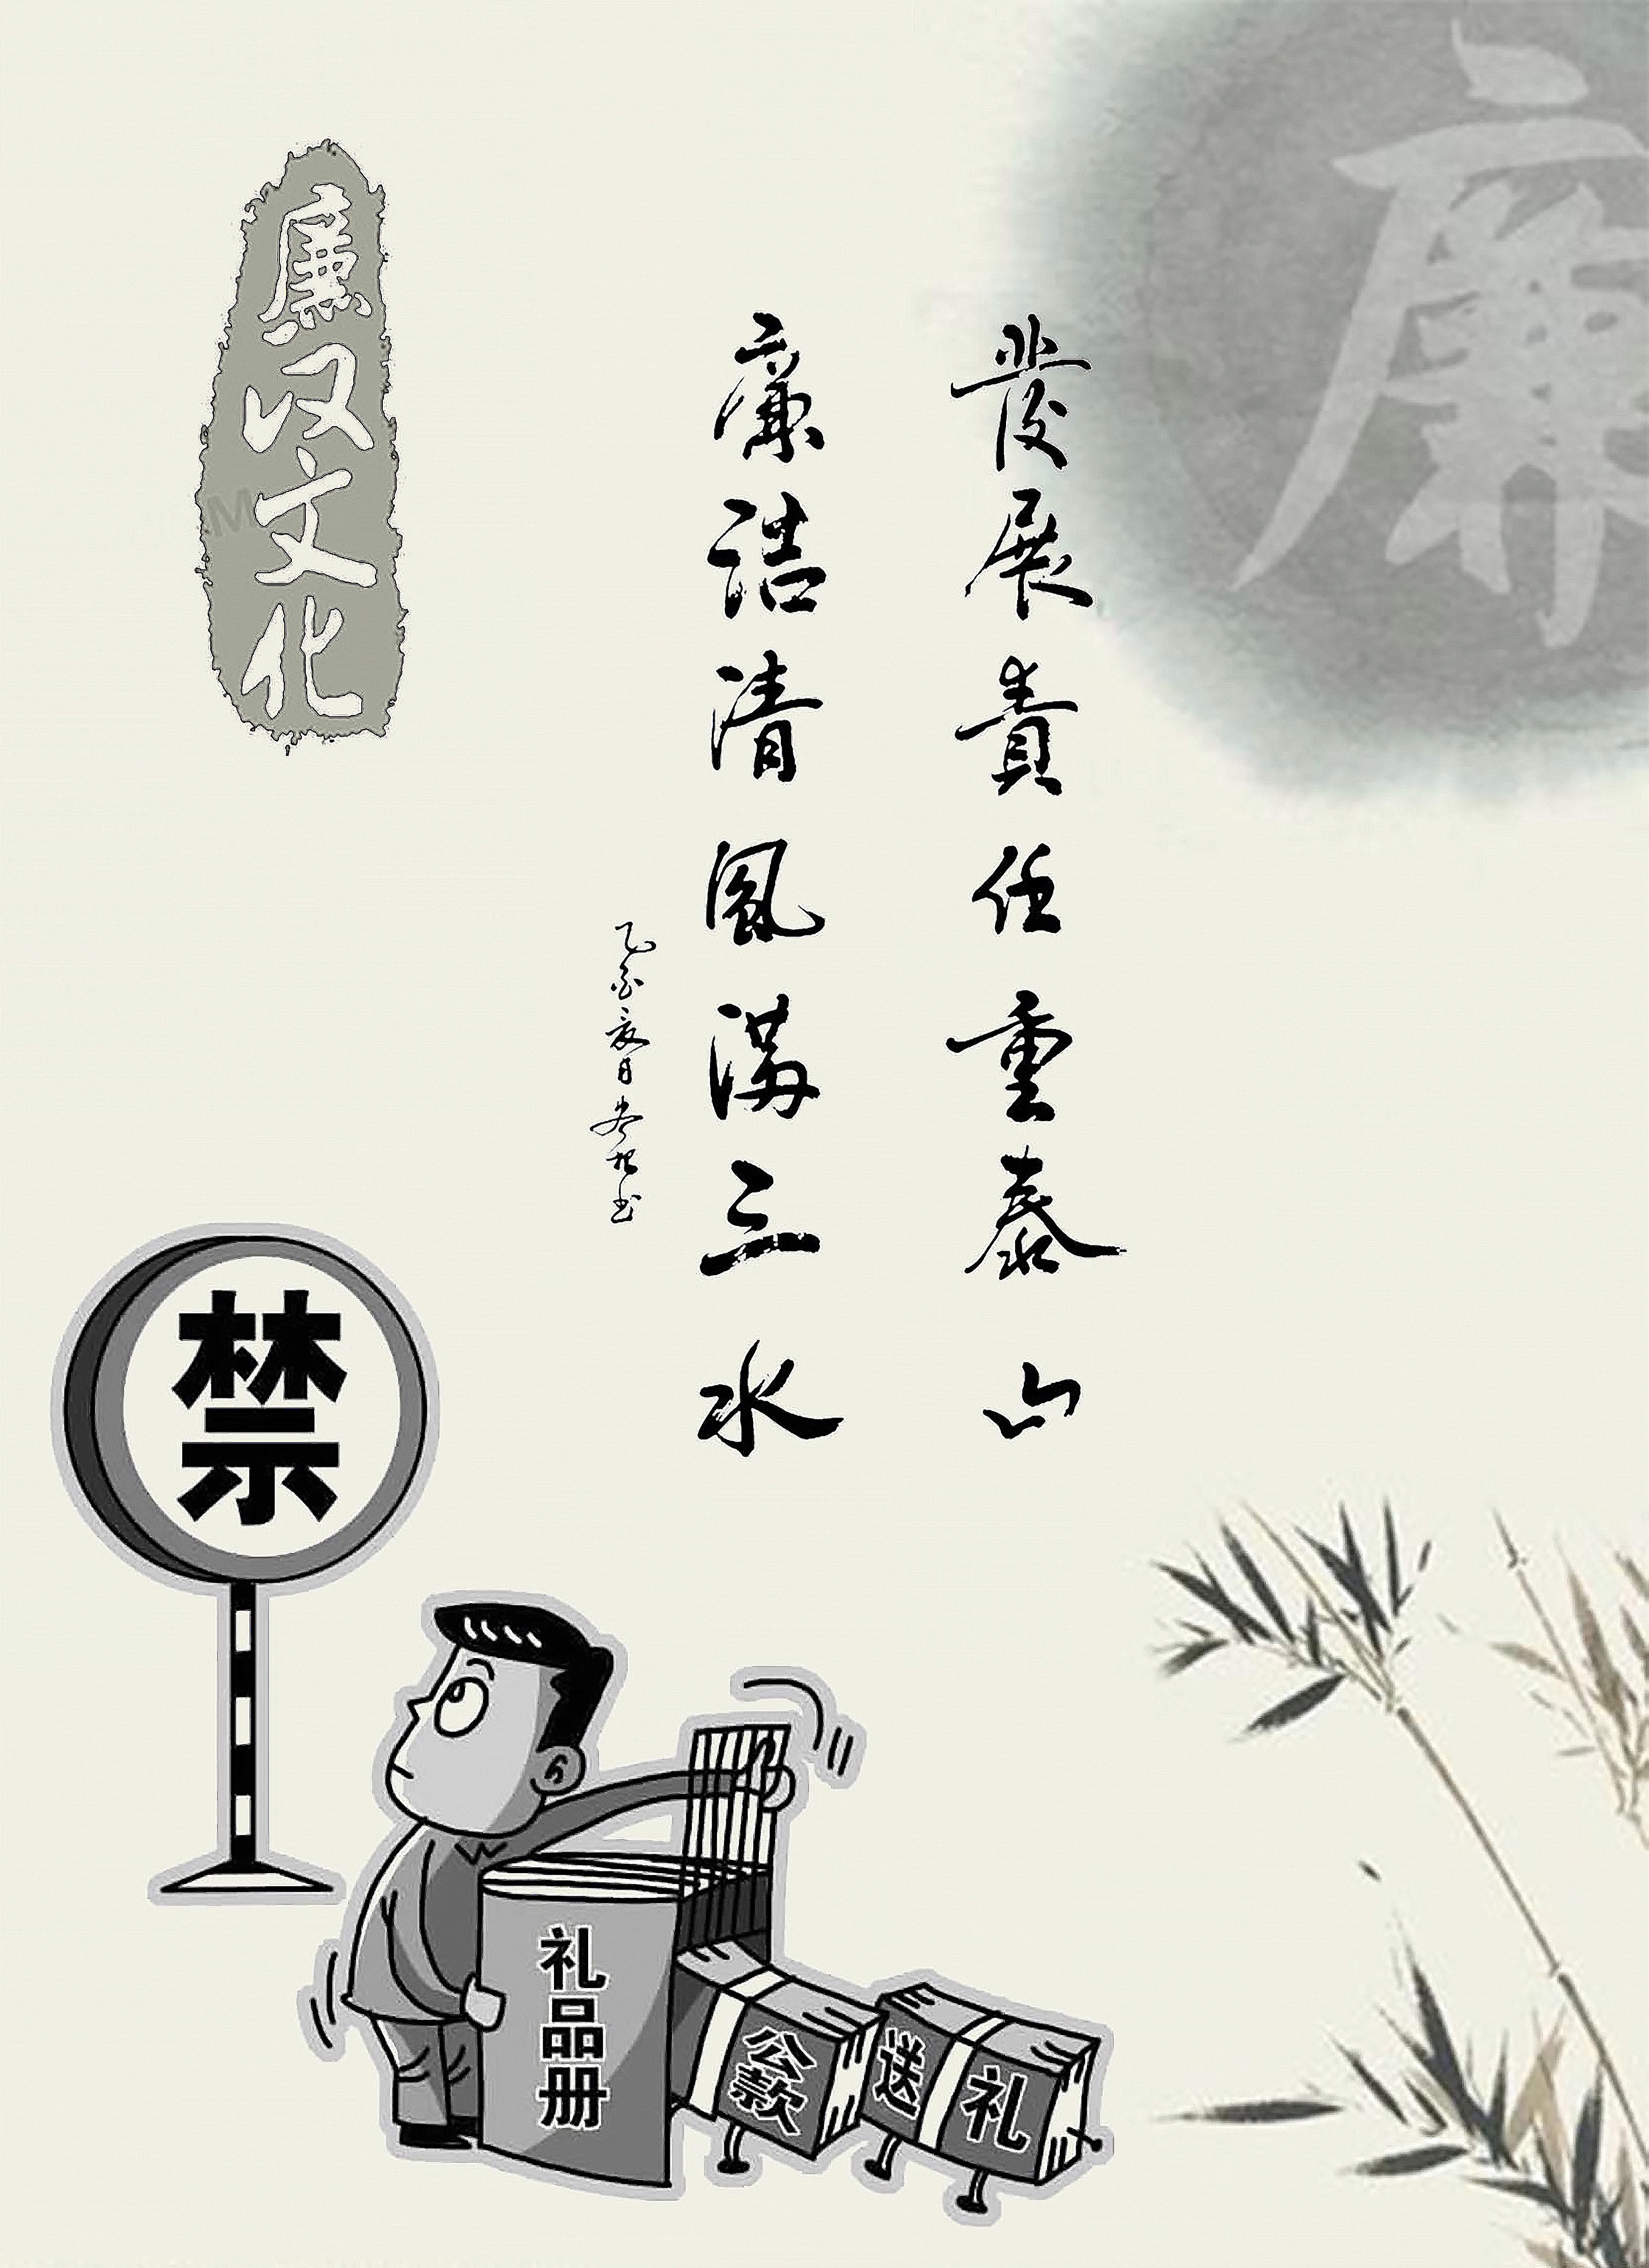 廉
發展責任重泰山
廉洁清風满三水
廉汉文化
禁
礼品册
公款
送礼